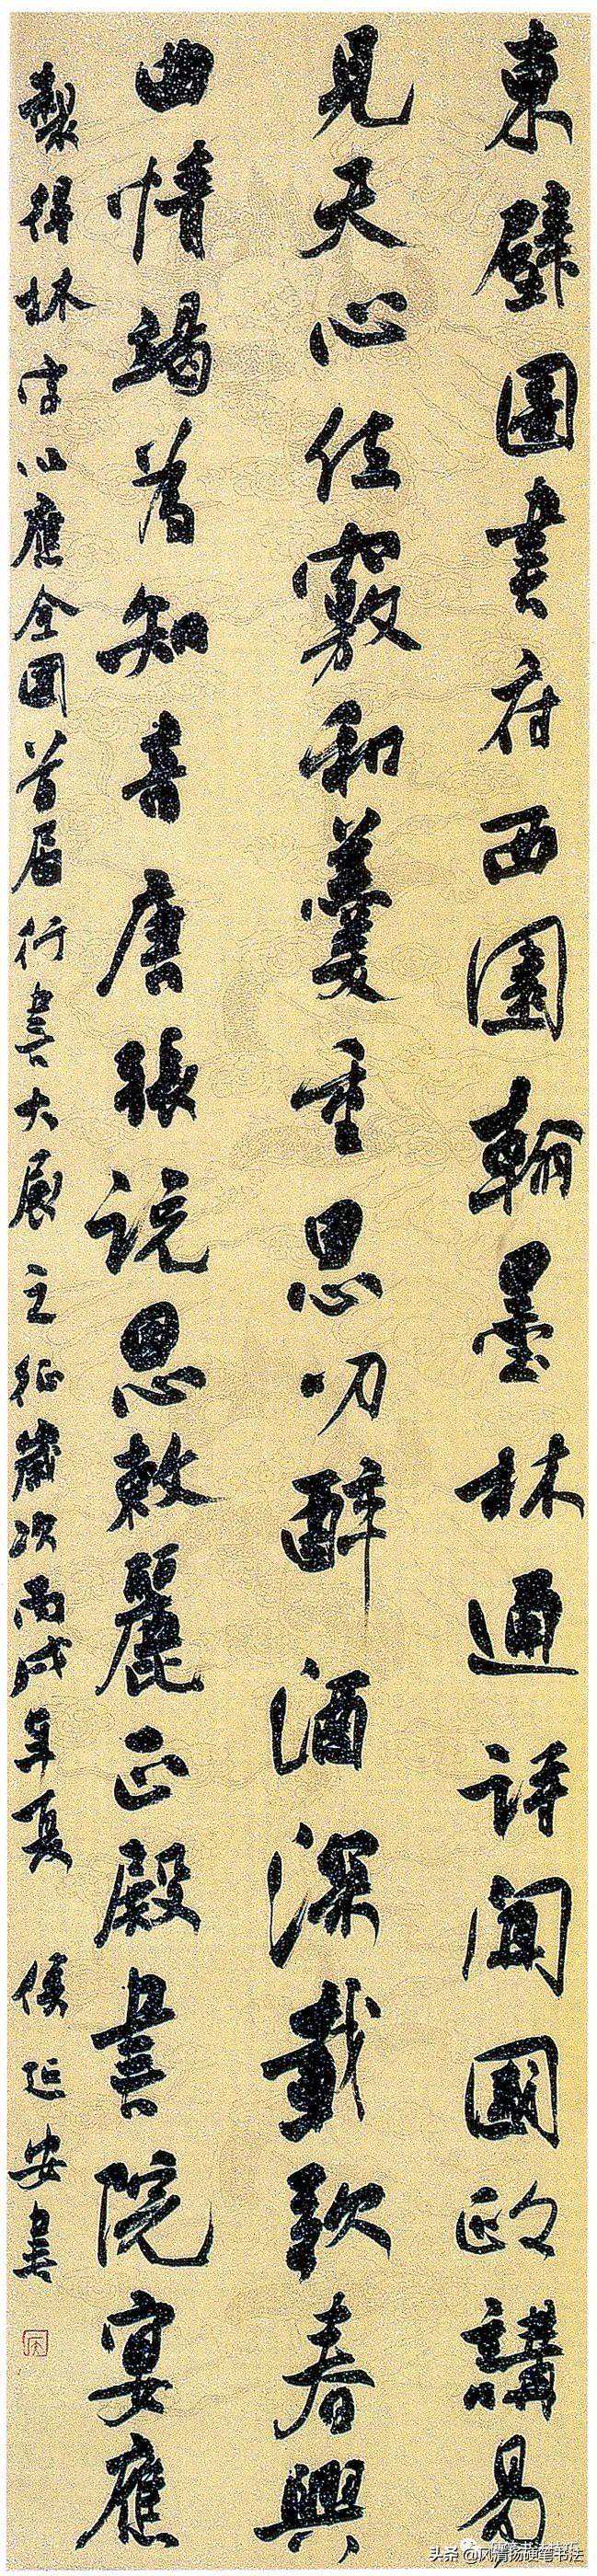 東壁圖書府西園翰墨林通詩聞國政講易
見天心位竊和羹重恩叨醉酒深載歌春興
曲情竭為知音唐張說恩敕麗正殿書院宴應
製得林字以應全國首屆行書大展之征歲次丙戌年夏 侯延安書
头条 @风清扬硬笔书法